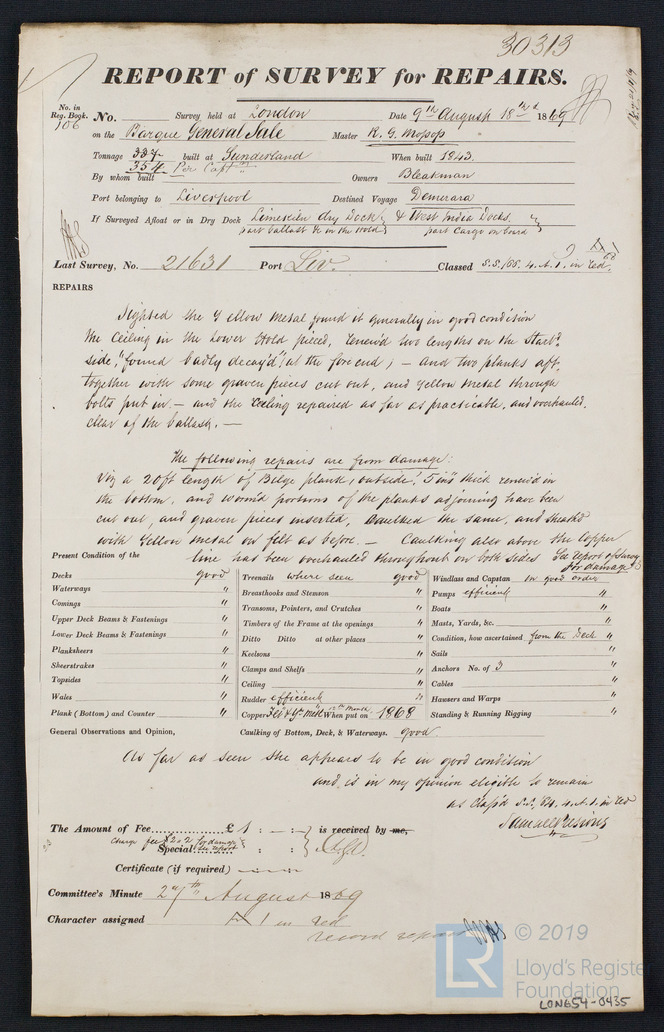 30313
REPORT of SURVEY for REPAIRS.
No. in Reg. Book. 106 No. Survey held at London Date 9th August 1869
on the Barque General Sale Master R. G. Mopsop
Tonnage 337 built at Sunderland When built 1843.
354 Per Captn
By whom built Owners Bleakman
Port belonging to Liverpool Destined Voyage Demerara
If Surveyed Afloat or in Dry Dock Limekiln dry Dock & West India Docks.
part ballast &c in the Hold part Cargo on board
Last Survey, No. 21631 Port Liv. Classed S.S./65. 4. A.1. in red.
REPAIRS
Sighted the Yellow Metal found it generally in good condition
the Ceiling in the Lower Hold pieced, renew'd two lengths on the Starbd.
side, "found badly decay'd", at the fore end; — And two planks aft,
together with some graven pieces cut out, and Yellow Metal through
bolts put in. — and the Ceiling repaired as far as practicable, and overhauled,
clear of the ballast. —
The following repairs are from damage:
Viz a 20 ft length of Bilge plank, outside, 5 ins thick renew'd in
the bottom, and worm'd portions of the planks adjoining have been
cut out, and graven pieces inserted, Caulked the same, and sheath'd
with Yellow Metal on felt as before. — Caulking also above the Copper
line has been overhauled throughout on both sides See report of Survey
for damage
Present Condition of the
Decks good
Waterways "
Comings "
Upper Deck Beams & Fastenings "
Lower Deck Beams & Fastenings "
Planksheers "
Sheerstrakes "
Topsides "
Wales "
Plank (Bottom) and Counter "
Treenails where seen good
Breasthooks and Stemson "
Transoms, Pointers, and Crutches "
Timbers of the Frame at the openings "
Ditto Ditto at other places "
Keelsons "
Clamps and Shelfs "
Ceiling "
Rudder efficient "
Copper Felt & Y. Metl When put on 12th Month 1868
Windlass and Capstan In good order
Pumps efficient "
Boats "
Masts, Yards, &c. "
Condition, how ascertained from the Deck "
Sails "
Anchors No. of 3 "
Cables "
Hawsers and Warps "
Standing & Running Rigging "
General Observations and Opinion, Caulking of Bottom, Deck, & Waterways. good
As far as seen she appears to be in good condition
and is in my opinion eligible to remain
as class'd S.S. 65. 4. A. 1. in red
The Amount of Fee £ 1 : — : — is received by me,
Charge fee £2.2 for damage
Special see report : :
Certificate (if required)
Committee's Minute 27th August 1869
Character assigned A 1 in red
record repairs
LR © 2019
Lloyd's Register
Foundation
LON654-0435